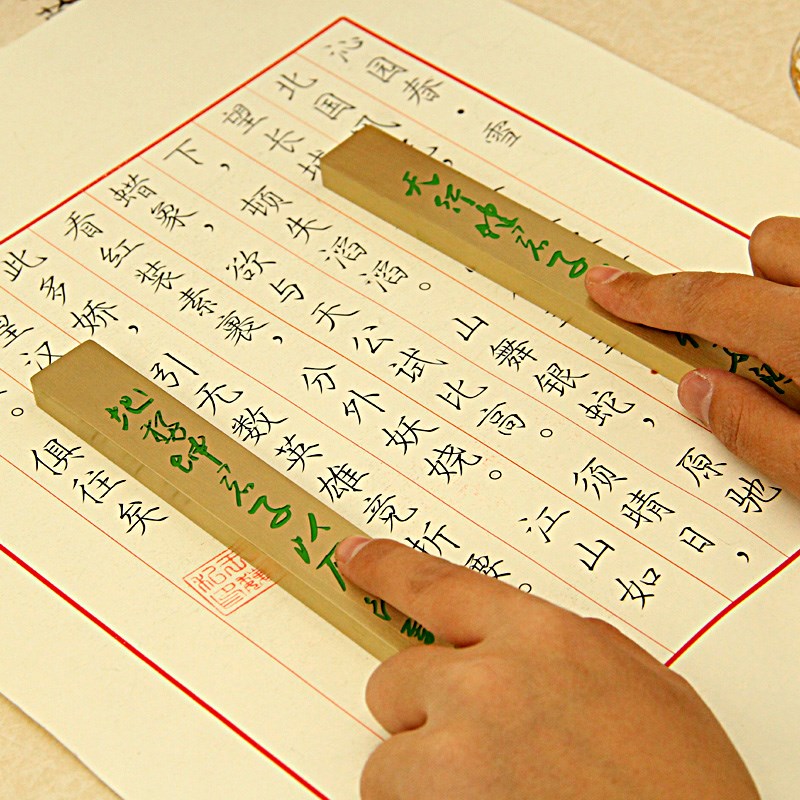 沁园春·雪
北国风
望长城
下，顿失滔滔。山舞银蛇，原驰
蜡象，欲与天公试比高。须晴日，
看红装素裹，分外妖娆。江山如
此多娇，引无数英雄竞折腰。
汉
。俱往矣
天行健君子
地势坤君子以厚